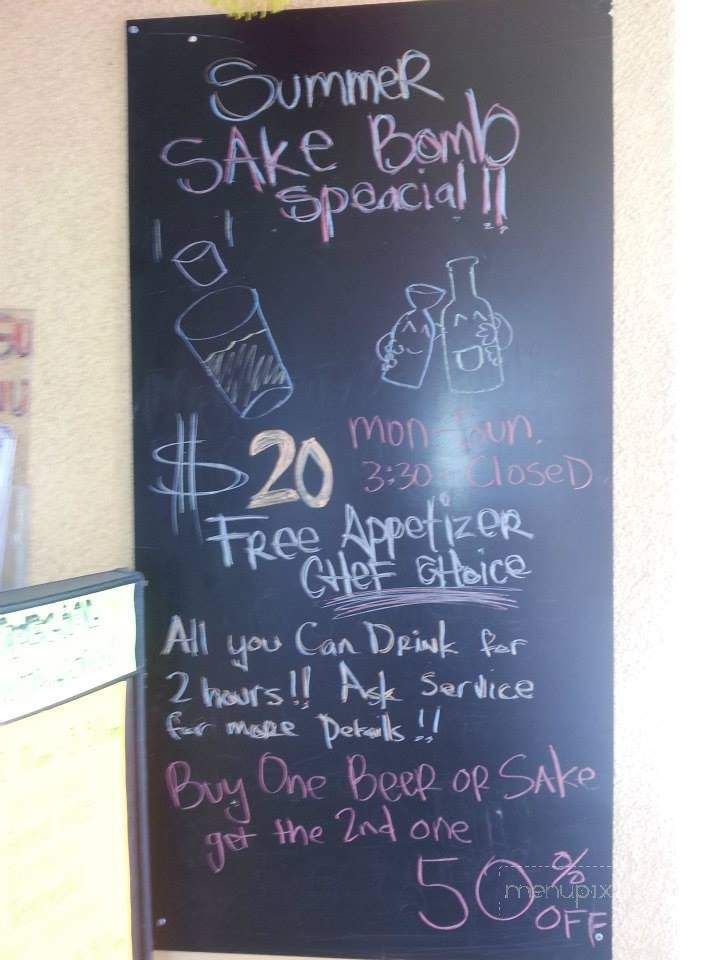 Summer
SAke Bomb
speacial!!
$20
mon-Sun.
3:30 Closed
Free Appetizer
CHEF CHoice
All you Can Drink for
2 hours!! Ask Service
for more Details!!
Buy One Beer or SAke
get the 2nd one
50% OFF
menupix